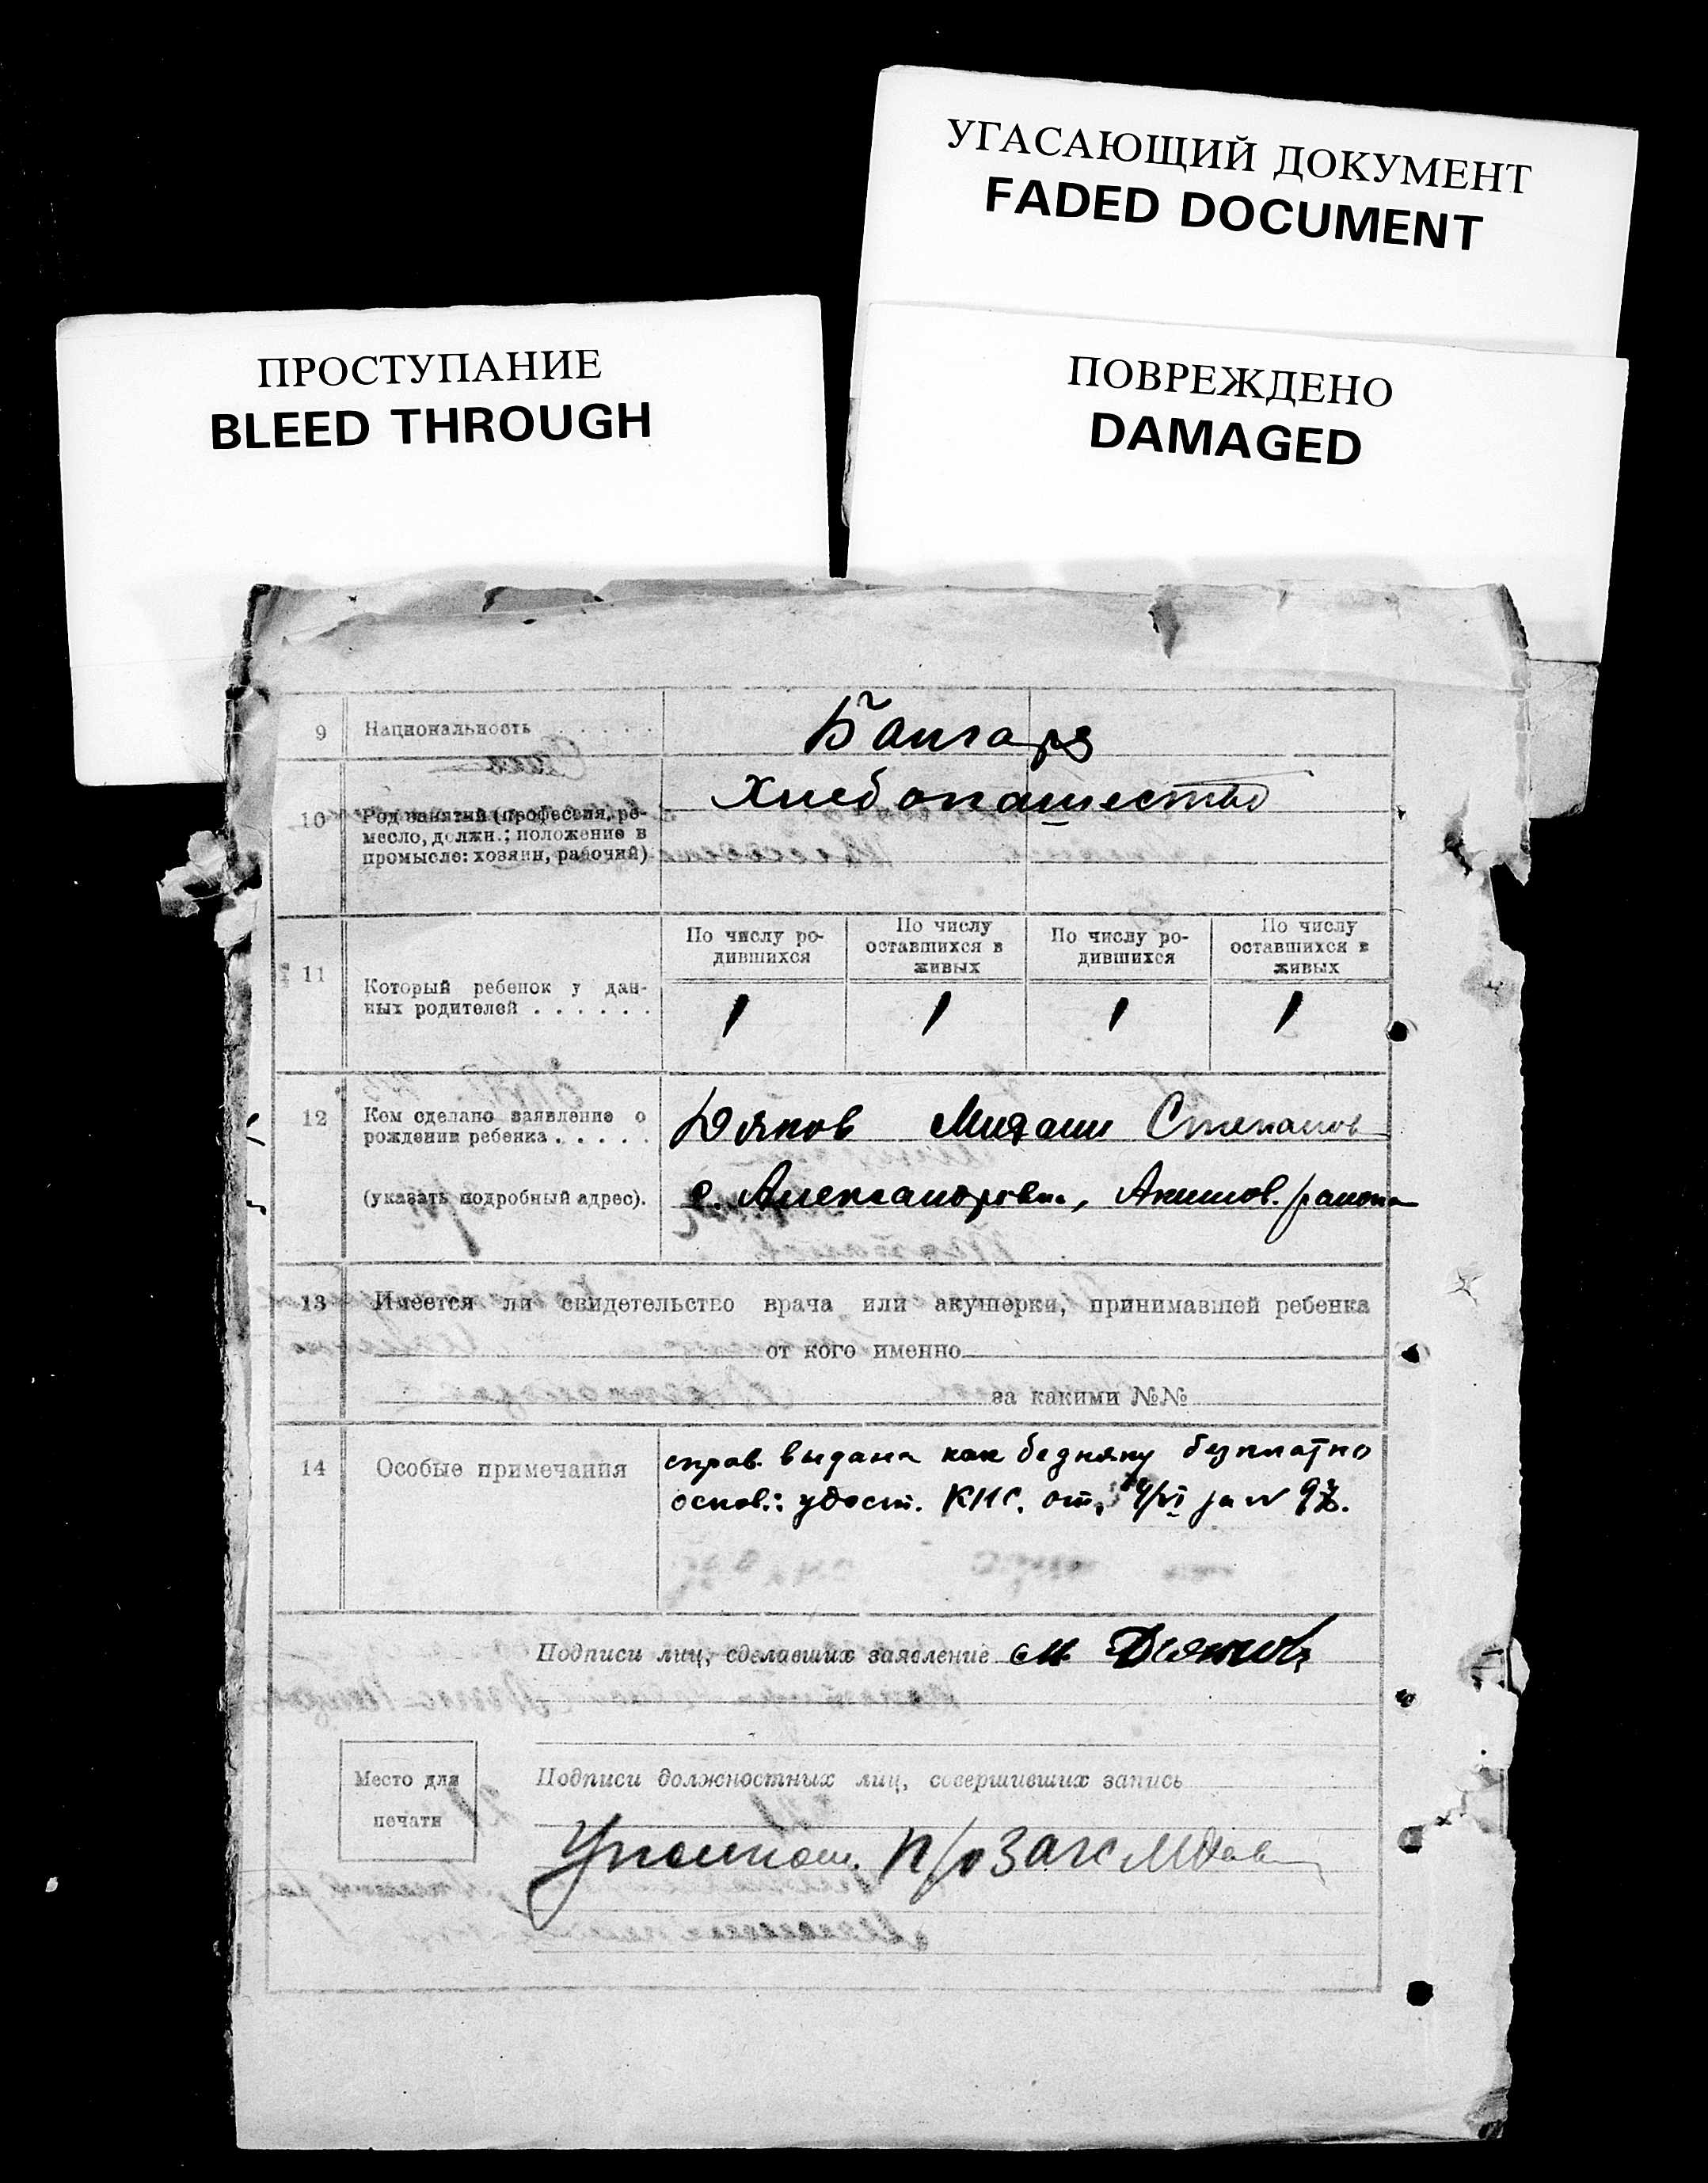 УГАСАЮЩИЙ ДОКУМЕНТ
FADED DOCUMENT
ПРОСТУПАНИЕ
BLEED THROUGH
ПОВРЕЖДЕНО
DAMAGED
9 Национальность . . . . . Болгаре
10 Род занятий (профессия, ре-
месло, должн.; положение в
промысле: хозяин, рабочий)
Хлебопашество
11 Который ребенок у дан-
ных родителей . . . . . .
По числу ро-
дившихся
По числу
оставшихся в
живых
По числу ро-
дившихся
По числу
оставшихся в
живых
1 1 1 1
12 Кем сделано заявление о
рождении ребенка . . . . .
(указать подробный адрес).
Дяков Михаил Степанов
с. Александровка, Акимов. района
13 Имеется ли свидетельство врача или акушерки, принимавшей ребенка
от кого именно
за какими №№
14 Особые примечания
справ. выдана как бедняку безплатно
основ.: удост. КНС. от /VI за №
Подписи лиц, сделавших заявление Дяков
Место для
печати
Подписи должностных лиц, совершивших запись
Уполном. п/о ЗАГС